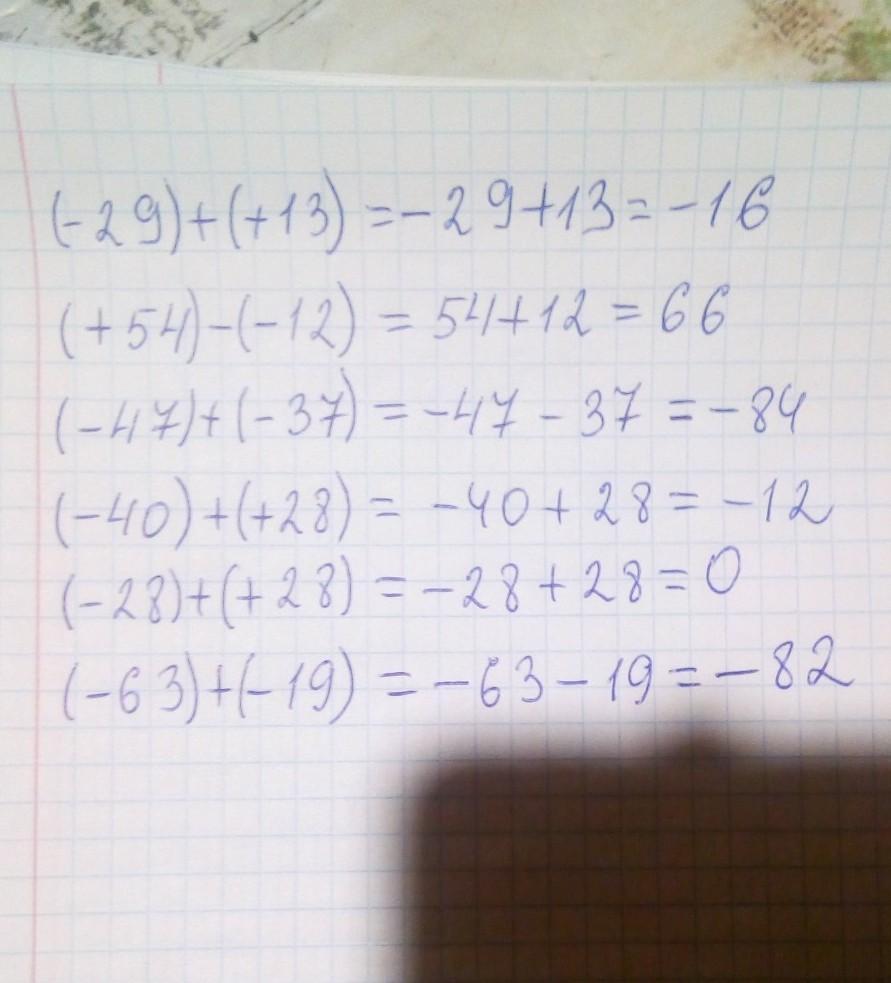 (-29)+(+13)=-29+13=-16
(+54)-(-12)=54+12=66
(-47)+(-37)=-47-37=-84
(-40)+(+28)=-40+28=-12
(-28)+(+28)=-28+28=0
(-63)+(-19)=-63-19=-82